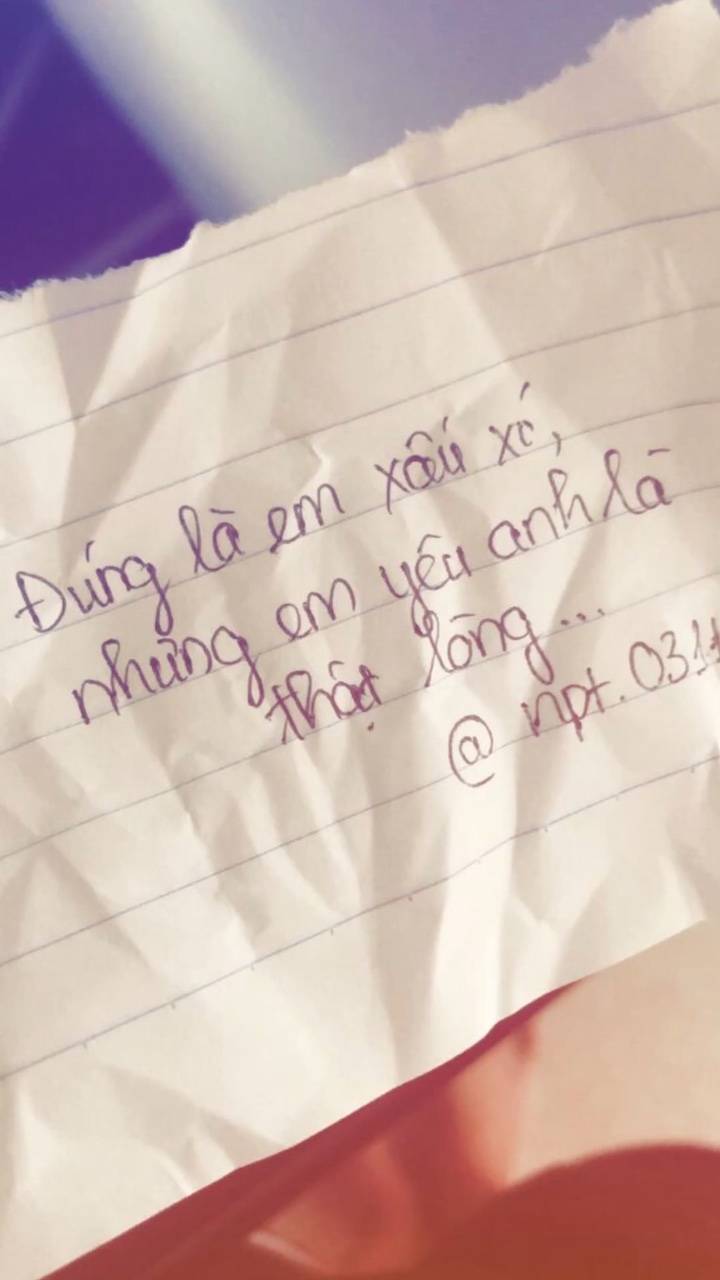 Đúng là em xấu xí,
nhưng em yêu anh là
thật lòng...
@ npt.031